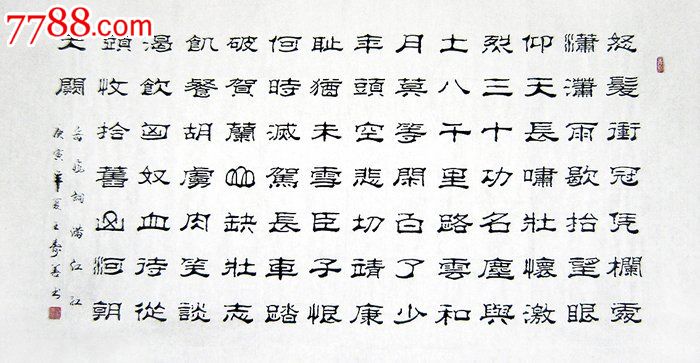 7788.com
怒髮衝冠凭欄處
瀟瀟雨歇抬望眼
仰天長嘯壯懷激
烈三十功名塵與
土八千里路雲和
月莫等閑白了少
年頭空悲切靖康
恥猶未雪臣子恨
何時滅駕長車踏
破賀蘭山缺壯志
飢餐胡虜肉笑談
渴飲匈奴血待從
頭收拾舊山河朝
天闕
岳飛詞滿江紅
庚寅年夏王善书